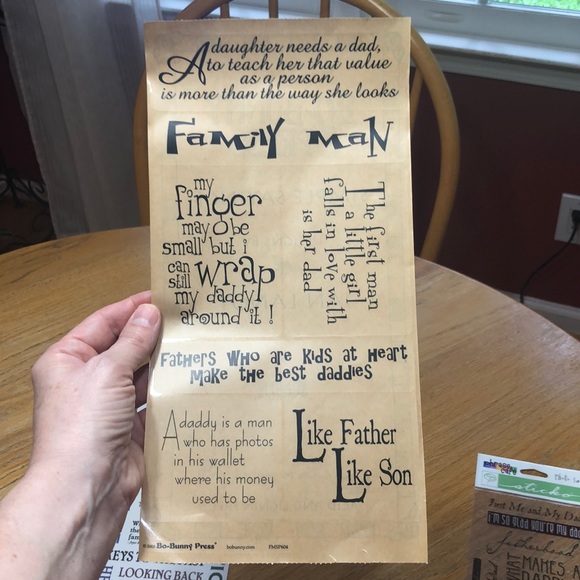 A daughter needs a dad,
to teach her that value
as a person
is more than the way she looks
Family Man
my
finger
may be
small but i
can still wrap
my daddy
around it !
The first man
a little girl
falls in love with
is her dad
Fathers who are kids at heart
make the best daddies
A daddy is a man
who has photos
in his wallet
where his money
used to be
Like Father
Like Son
Bo-Bunny Press
bobunny.com
sticko
Just Me and My Da
I'm so glad you're my dad
fatherhood
WHAT MAKES A
LOOKING BACK